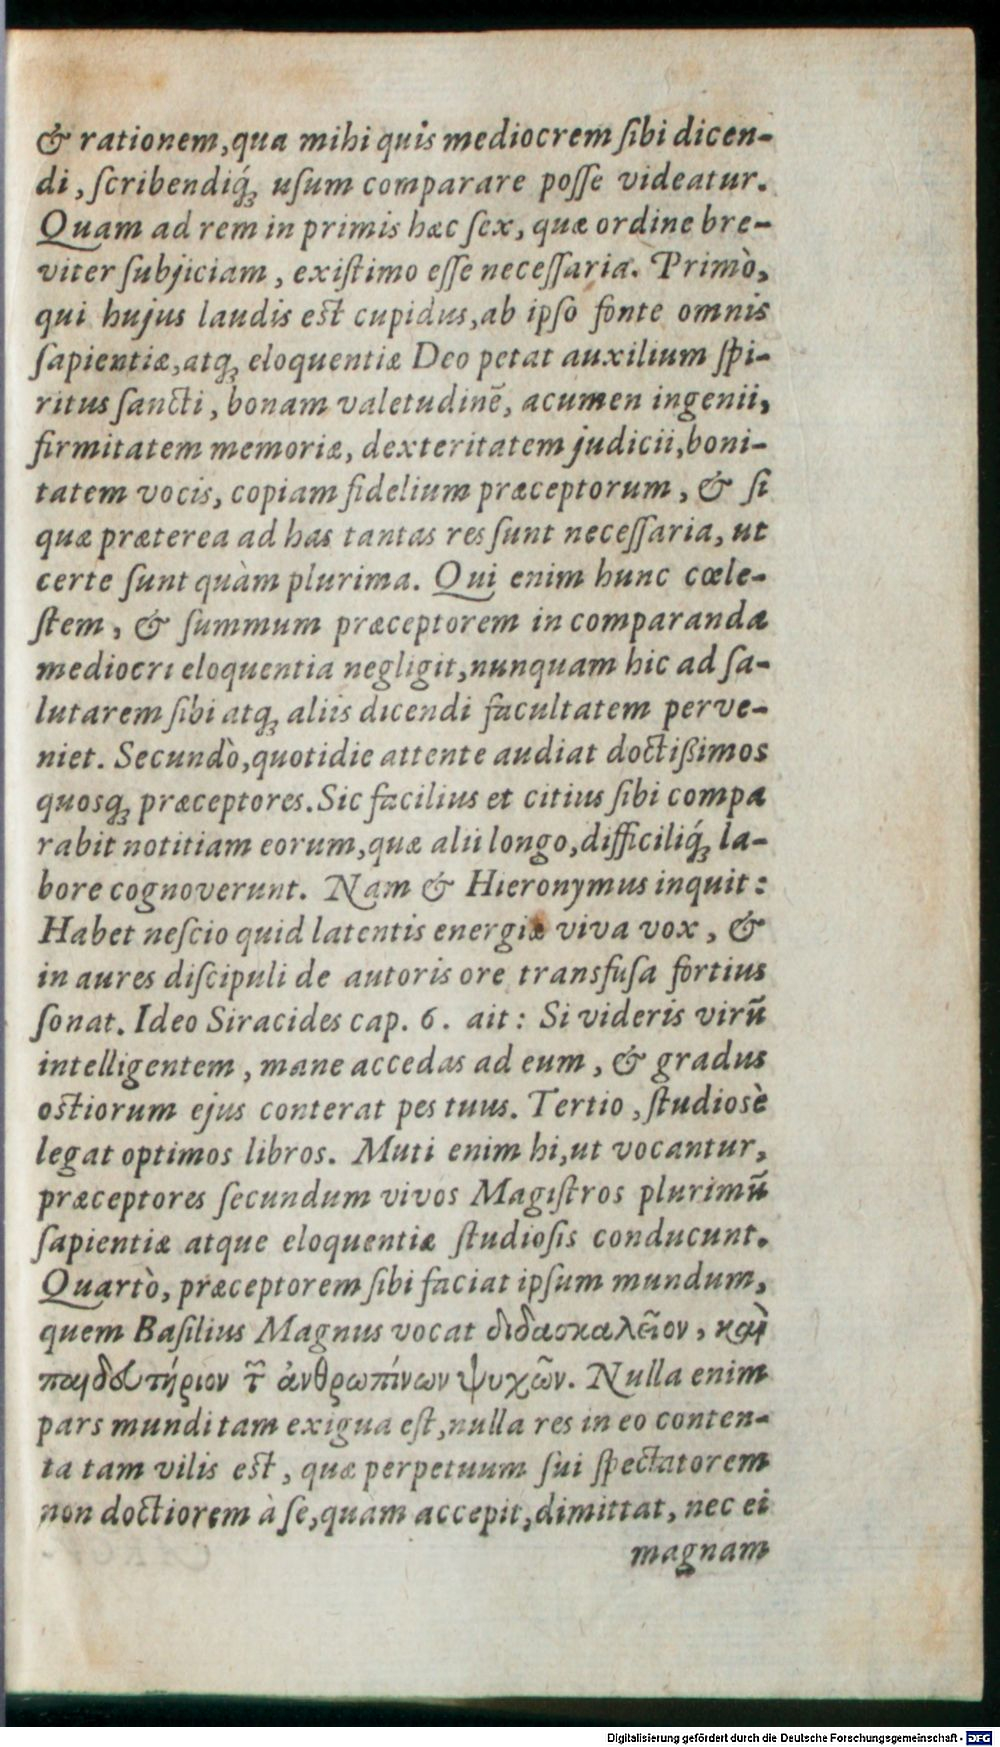 & rationem, qua mihi quis mediocrem ſibi dicen-
di, ſcribendiq́; uſum comparare poſſe videatur.
Quam ad rem in primis hæc ſex, quæ ordine bre-
viter ſubjiciam, exiſtimo eſſe neceſſaria. Primò,
qui hujus laudis est cupidus, ab ipſo fonte omnis
ſapientiæ, atq; eloquentiæ Deo petat auxilium ſpi-
ritus ſancti, bonam valetudinē, acumen ingenii,
firmitatem memoriæ, dexteritatem judicii, boni-
tatem vocis, copiam fidelium præceptorum, & ſi
quæ præterea ad has tantas res ſunt neceſſaria, ut
certe ſunt quàm plurima. Qui enim hunc cœle-
ſtem, & ſummum præceptorem in comparanda
mediocri eloquentia negligit, nunquam hic ad ſa-
lutarem ſibi atq; aliis dicendi facultatem perve-
niet. Secundò, quotidie attente audiat doctißimos
quosq; præceptores. Sic facilius et citius ſibi compa
rabit notitiam eorum, quæ alii longo, difficiliq́; la-
bore cognoverunt. Nam & Hieronymus inquit:
Habet neſcio quid latentis energiæ viva vox, &
in aures diſcipuli de autoris ore transfuſa fortius
ſonat. Ideo Siracides cap. 6. ait: Si videris virū
intelligentem, mane accedas ad eum, & gradus
ostiorum ejus conterat pes tuus. Tertio, ſtudiosè
legat optimos libros. Muti enim hi, ut vocantur,
præceptores ſecundum vivos Magiſtros plurimū
ſapientiæ atque eloquentiæ ſtudioſis conducunt.
Quartò, præceptorem ſibi faciat ipſum mundum,
quem Baſilius Magnus vocat διδασκαλεῖον, καὶ
παιδευτήριον τῶν ἀνθρωπίνων ψυχῶν. Nulla enim
pars mundi tam exigua eſt, nulla res in eo conten-
ta tam vilis est, quæ perpetuum ſui ſpectatorem
non doctiorem à ſe, quàm accepit, dimittat, nec ei
magnam
Digitalisierung gefördert durch die Deutsche Forschungsgemeinschaft - DFG